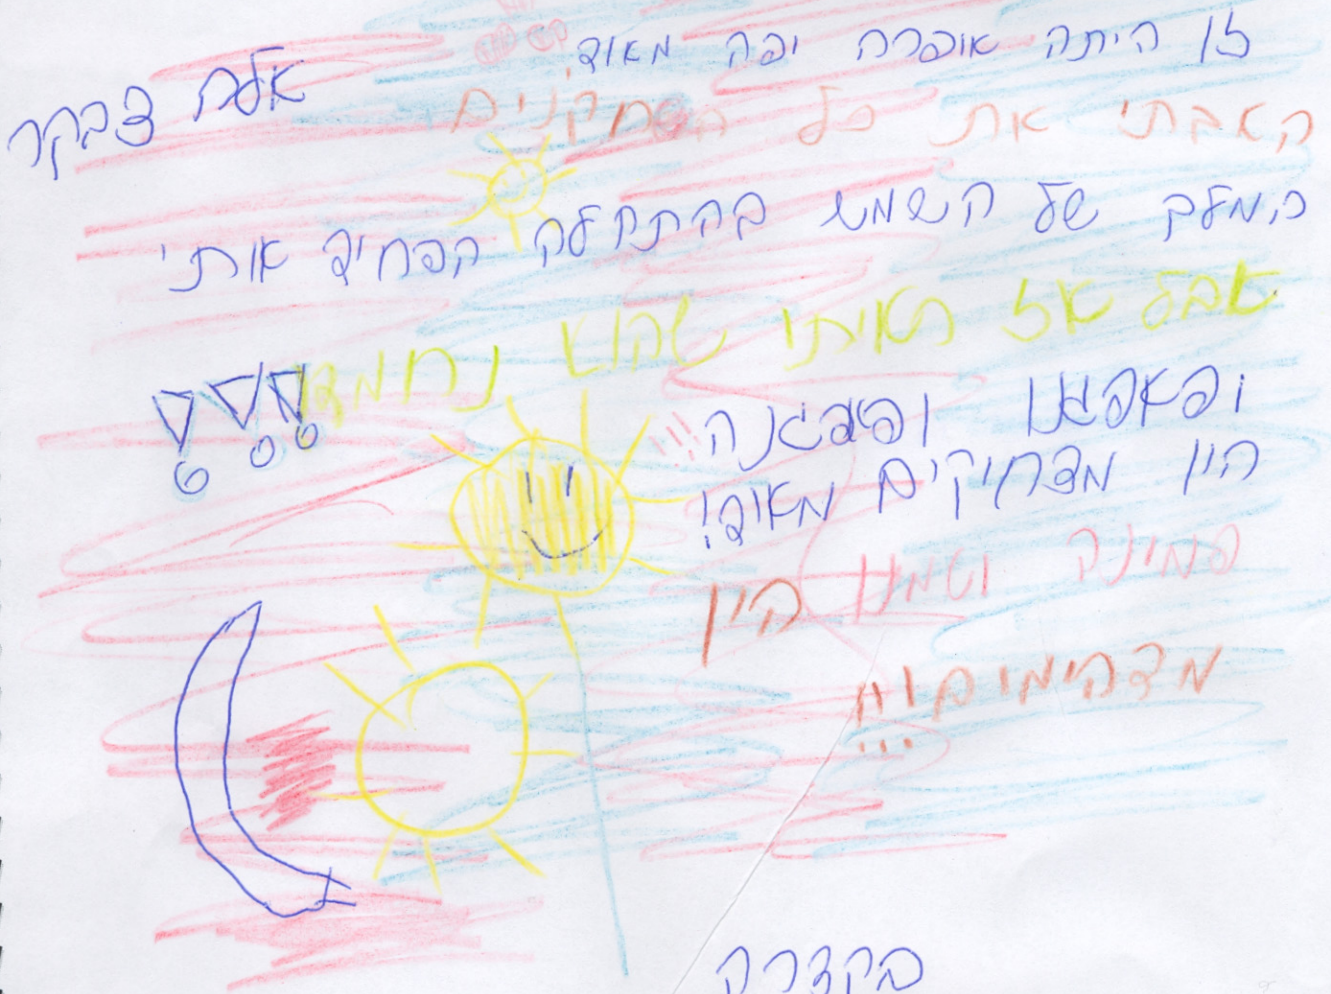 זו היתה אופרה יפה מאוד.
אלה צבקר
האבתי את כל השחקנים
המלך של השמש בהתחלה הפחיד אותי
אבל אז ראיתי שהוא נחמד!!!
ופאפגנו ופפגנה!!!
היו מצחיקים מאוד!
פמינה וטמינו היו
מדהימים!!!